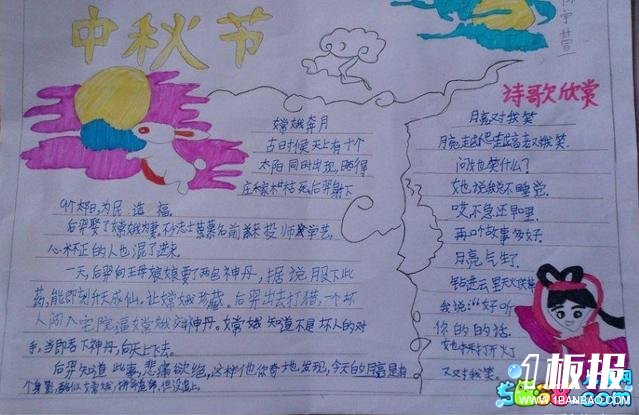 中秋节
嫦娥奔月
古时候天上有十个
太阳同时出现,晒得
庄稼枯死,后羿射下
9个太阳,为民造福。
后羿娶了嫦娥为妻。不少志士慕名前来投师学艺,
心术不正的人也混了进来。
一天,后羿向王母娘娘要了两包神丹,据说服下此
药,能即刻升天成仙。让嫦娥珍藏。后羿出去打猎,一个坏
人闯入宅院逼嫦娥交神丹。嫦娥知道不是坏人的对
手,当即吞下神丹,向天上下去。
后羿知道此事,悲痛欲绝,这样他惊奇地发现,今天的月亮是
个身影,酷似嫦娥,拼命追
诗歌欣赏
月亮对我笑
月亮走起路来对我笑
问她笑什么?
她说我不睡觉.
哎,不急还早哩,
再听故事多好.
月亮气生了.
钻进云里
我说:“好听
你的的话.
打开灯
又对我笑.
1板报
WWW.1BANBAO.COM